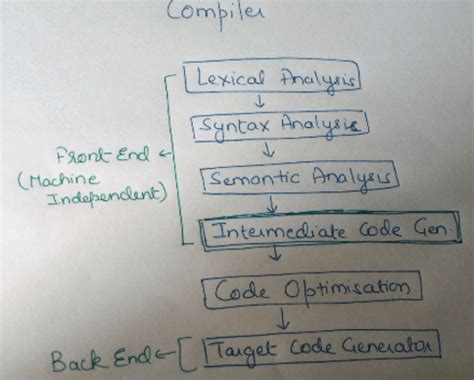 Compiler
Lexical Analysis
Syntax Analysis
Front End
(Machine
Independent)
Semantic Analysis
Intermediate Code Gen.
Code Optimisation
Back End
Target Code Generator